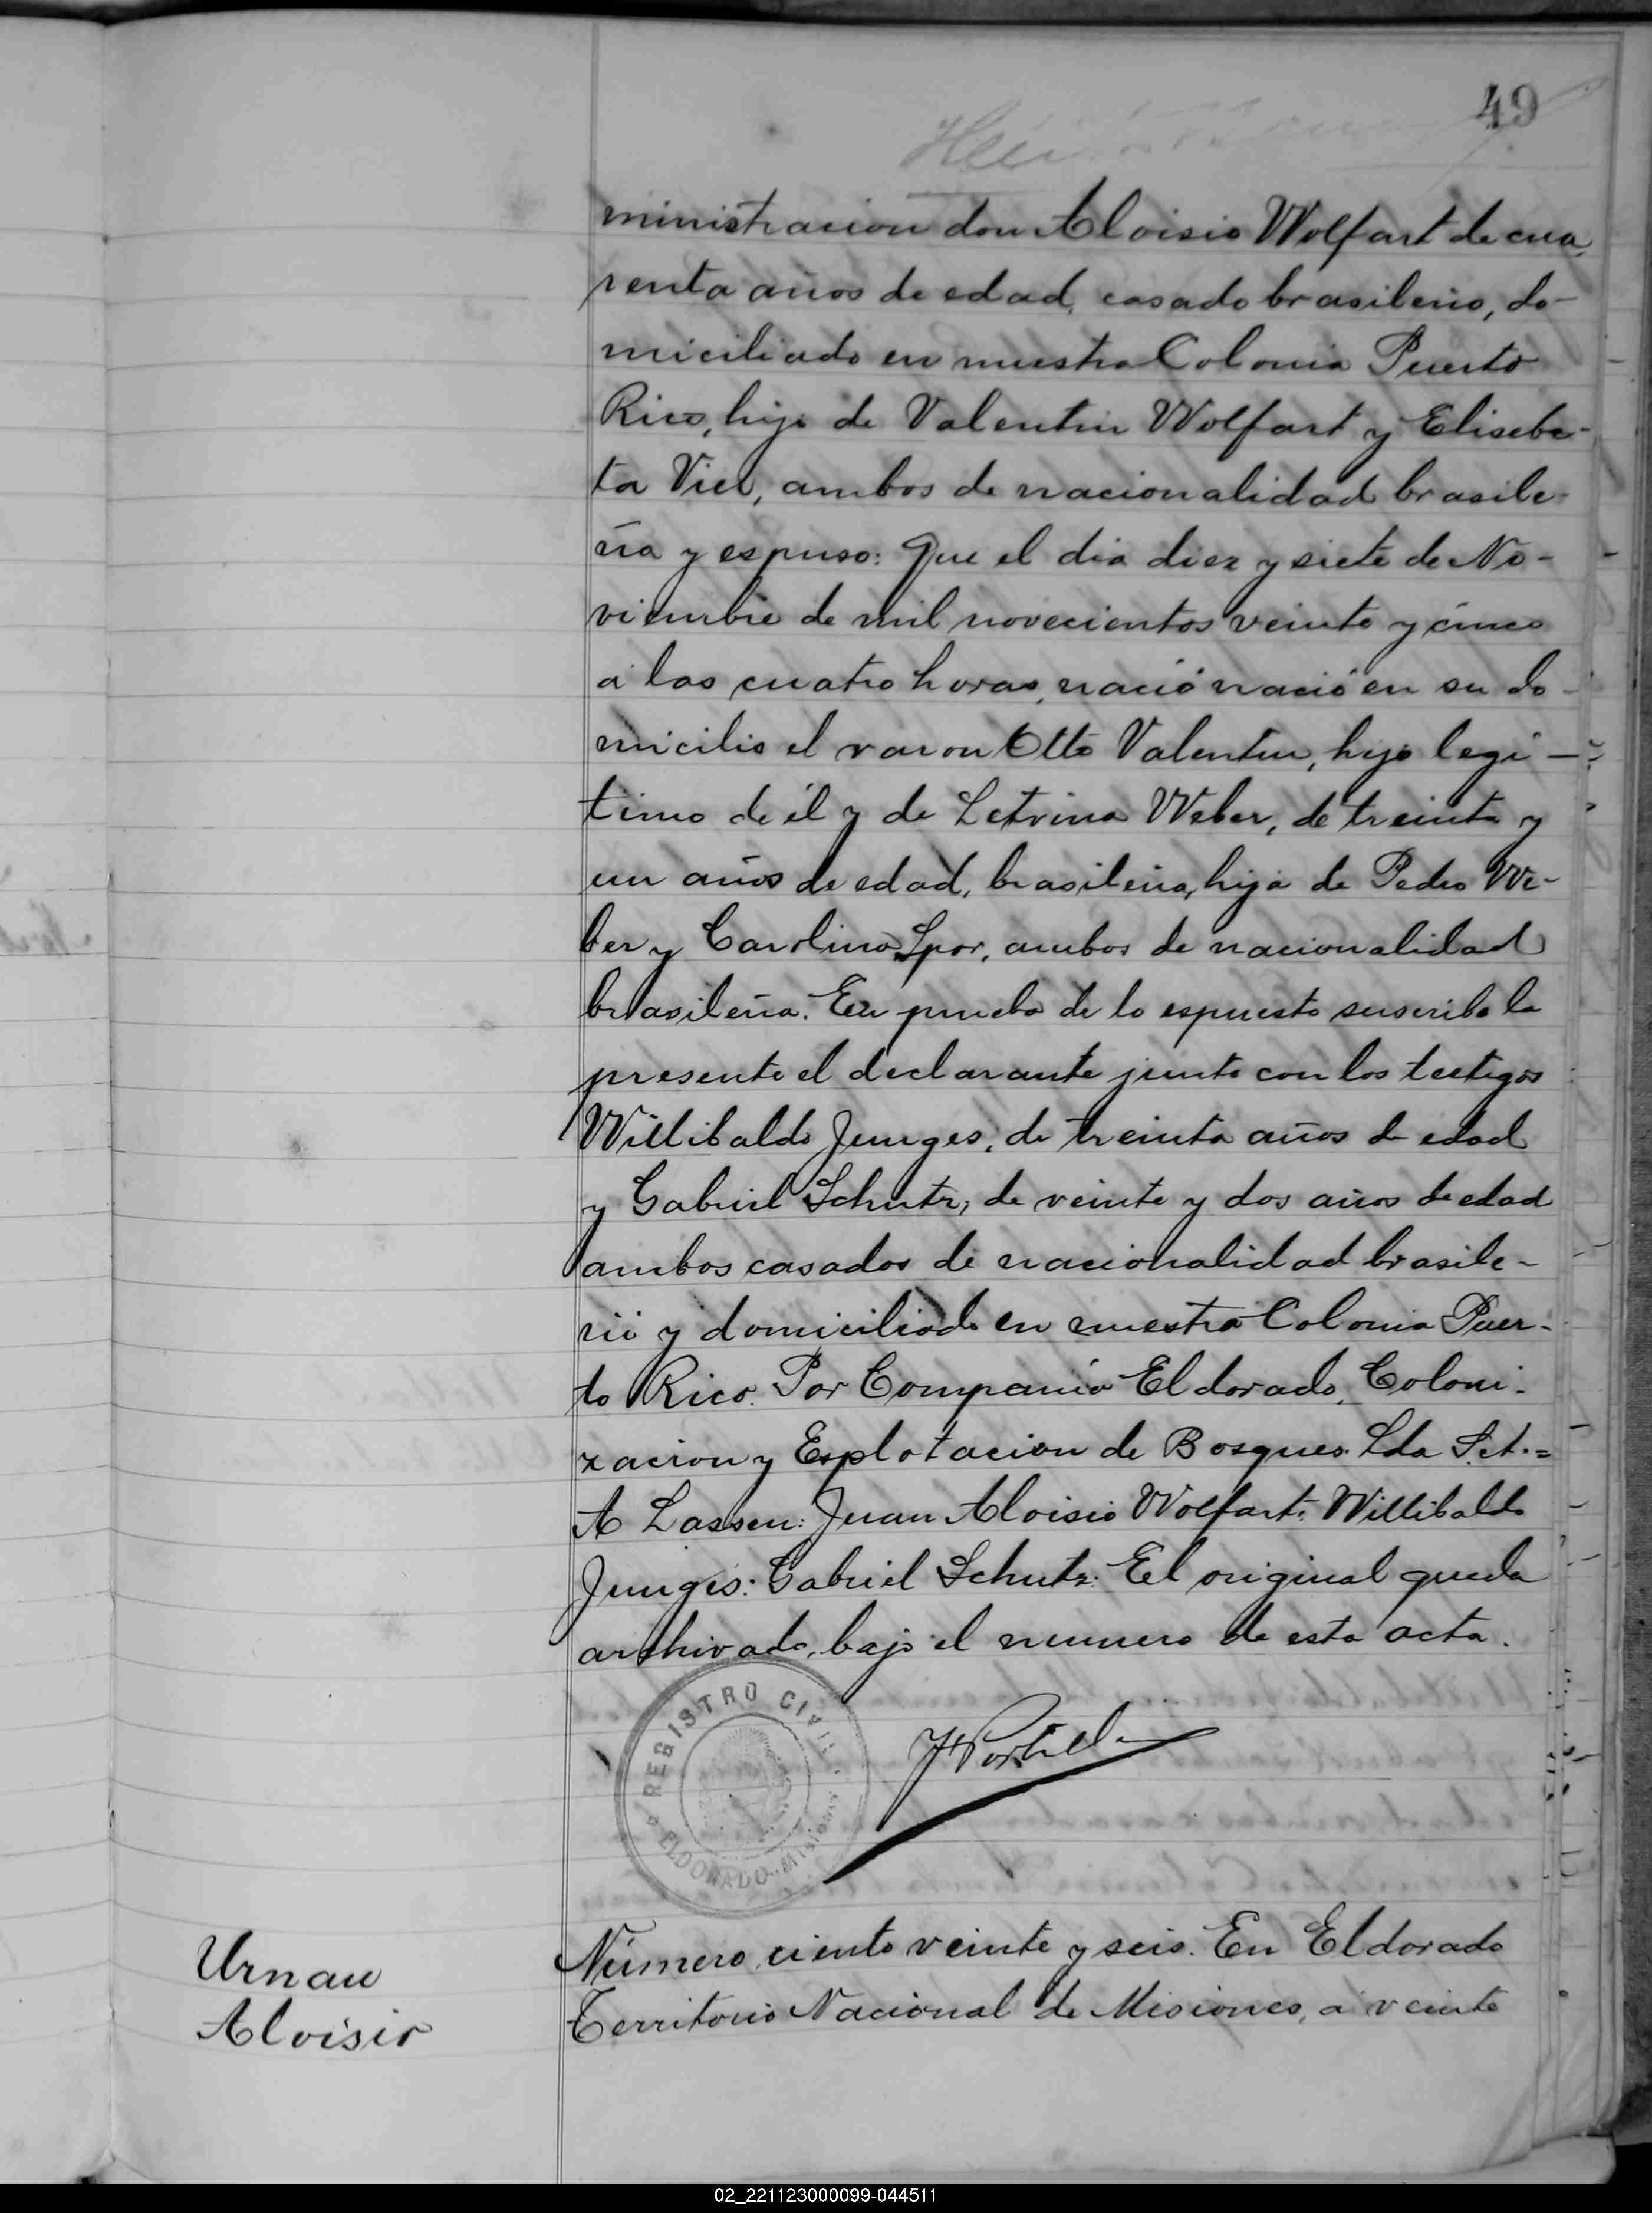 49
ministracion don Aloisio Wolfart de cua
renta años de edad, casado brasileño, do-
miciliado en nuestra Colonia Puerto
Rico, hijo de Valentin Wolfart y Elisebe-
ta Viel, ambos de nacionalidad brasile-
ña y espuso: Que el dia diez y siete de No-
viembre de mil novecientos veinte y cinco
a las cuatro horas, nació nació en su do-
micilio el varon Otto Valentin, hijo legi-
timo de él y de Letvina Weber, de treinta y
un años de edad, brasileña, hija de Pedro We-
ber y Carolina Spor, ambos de nacionalidad
brasileña. En prueba de lo espuesto suscribe la
presente el declarante junto con los testigos
Willibaldo Junges, de treinta años de edad
y Gabriel Schutz, de veinte y dos años de edad
ambos casados de nacionalidad brasile-
ña y domiciliado en nuestra Colonia Puer-
to Rico. Por Compañia Eldorado, Coloni-
zacion y Esplotacion de Bosques Lda S.A.=
A Lassen: Juan Aloisio Wolfart: Willibaldo
Junges: Gabriel Schutz: El original queda
archivado, bajo el numero de esta acta.
REGISTRO CIVIL
ELDORADO - Misiones
Urnau
Aloisio
Número ciento veinte y seis. En Eldorado
Territorio Nacional de Misiones, a veinte
02_221123000099-044511